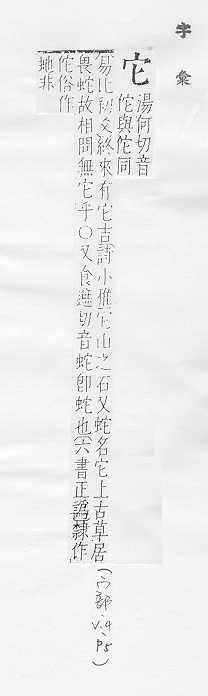 字彙
它
湯何切音
佗與佗同
易比初爻終來有它吉詩小雅它山之石又蛇名它上古草居
畏蛇故相問無它乎○又食遮切音蛇卽蛇也六書正譌隸作
佗俗作
他非
(宀部、V.4、P5)